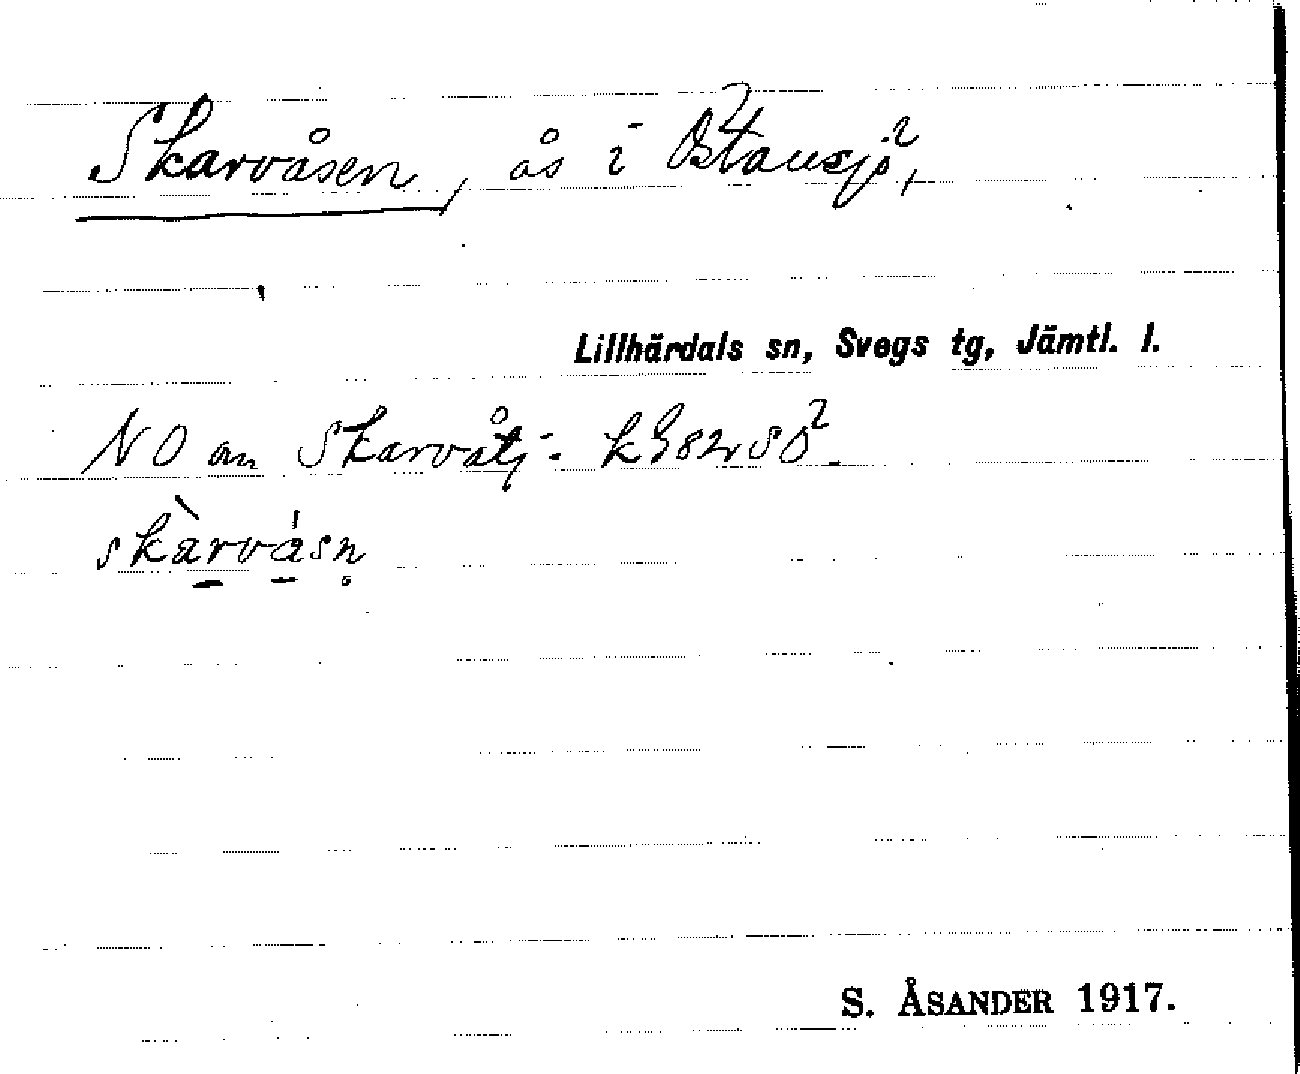 Skarvåsen, ås i Östansjö,
Lillhärdals sn, Svegs tg, Jämtl. l.
NO om Skarvåtj:
skàrvásn̥
S. ÅSANDER 1917.